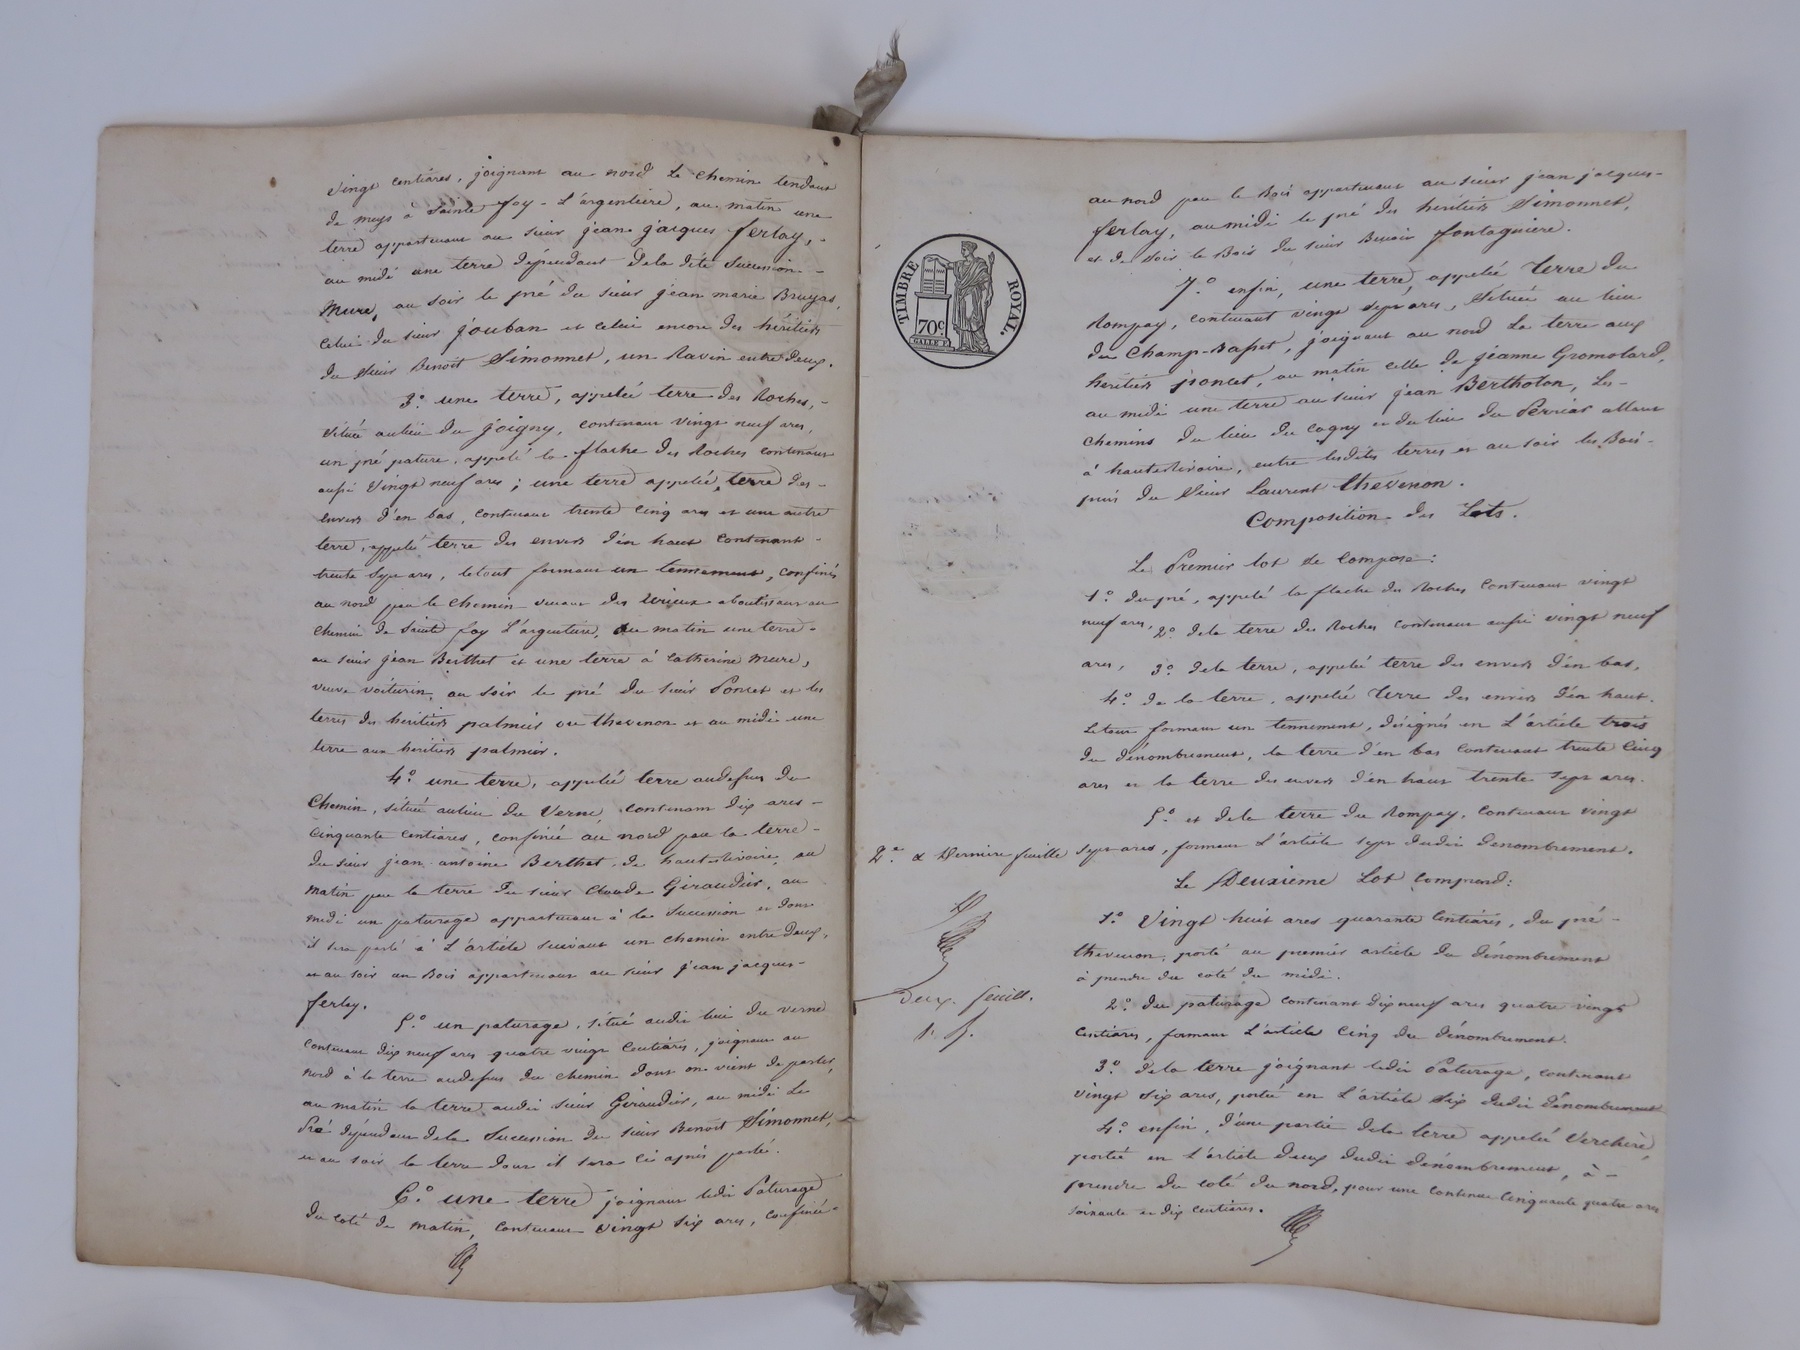 vingt centiares, joignant au nord le chemin tendant
de meys à Sainte foy-L'argentière, au matin une
terre appartenant au sieur jean jacques ferlay,
au midi une terre dépendant dela dite Succession
Mure, au soir le pré du sieur jean marie Bruyas,
celui du sieur jouban et celui encore des héritiers
du sieur Benoit Simonnet, un Ravin entre deux.
3.° une terre, appelée terre des Roches,
située aulieu du joigny, contenant vingt neuf ares,
un pré pature, appelé la flache des Roches contenant
aussi vingt neuf ares; une terre appelée, terre des
envers d'en bas, contenant trente cinq ares et une autre
terre, appelée terre des envers d'en haut contenant
trente sept ares, letout formant un tennement, confinés
au nord par le chemin venant des aboutissant au
chemin de Sainte foy L'argentière, au matin une terre
au sieur jean Berthet et une terre à Catherine Mure,
veuve voiturin, au soir le pré du sieur Poncet et les
terres des héritiers palmier ou thevenon et au midi une
terre aux héritiers palmier.
4.° une terre, appelée terre audessus du
Chemin, située aulieu du Verne, contenant dix ares
cinquante centiares, confinée au nord par la terre
du sieur jean antoine Berthet de hauterivoire, au
matin par la terre du sieur Claude Giraudier, au
midi un paturage appartenant à la Succession et dont
il sera parlé à L'article suivant un chemin entre deux,
et au soir un Bois appartenant au sieur jean jacques
ferlay.
5.° un paturage, situé audit lieu du verne
contenant dix neuf ares quatre vingt centiares, joignant au
nord à la terre audessus du chemin dont on vient de parler,
au matin la terre audit sieur Giraudier, au midi le
Pré dépendant dela Succession du sieur Benoit Simonnet,
et au soir la terre dont il sera ci après parlé.
6.° une terre joignant ledit Paturage
du coté de matin, contenant vingt six ares, confinée
au nord par le Bois appartenant au sieur jean jacques
ferlay, au midi le pré des héritiers Simonnet,
et de soir le Bois du sieur Benoit fontagnière.
TIMBRE ROYAL.
70c.
7.° enfin, une terre, appelée terre du
Rompay, contenant vingt sept ares, située au lieu
du Champ-Basset, joignant au nord la terre aux
héritiers poncet, au matin celle de jeanne Gromolard,
au midi une terre au sieur jean Bertholon, Les
chemins du lieu du Cogny et du lieu du Perrier allant
à hauterivoire, entre lesdites terres et au soir les Bois
pins du sieur Laurent thevenon.
Composition des Lots.
Le Premier lot se compose:
1.° du pré, appelé la flache des Roches contenant vingt
neuf ares, 2.° dela terre des Roches contenant aussi vingt neuf
ares, 3.° dela terre, appelée terre des envers d'en bas,
4.° de la terre, appelée terre des envers d'en haut.
Letout formant un tennement, désignés en L'article trois
du dénombrement, la terre d'en bas contenant trente cinq
ares et la terre des envers d'en haut trente sept ares.
5.° et dela terre du Rompay, contenant vingt
2.e & Dernière feuille
sept ares, formant L'article sept dudit dénombrement.
Le Deuxième Lot comprend:
1.° Vingt huit ares quarante centiares, du pré
thevenon, porté au premier article du dénombrement
à prendre du coté du midi.
deux. feuill.
2.° du paturage contenant dix neuf ares quatre vingt
centiares, formant L'article cinq du dénombrement.
3.° dela terre joignant ledit Paturage, contenant
vingt six ares, portée en L'article six dudit dénombrement
4.° enfin, d'une partie dela terre appelée Verchère,
portée en L'article deux dudit dénombrement, à
prendre du coté du nord, pour une contenue cinquante quatre ares
soixante et dix centiares.